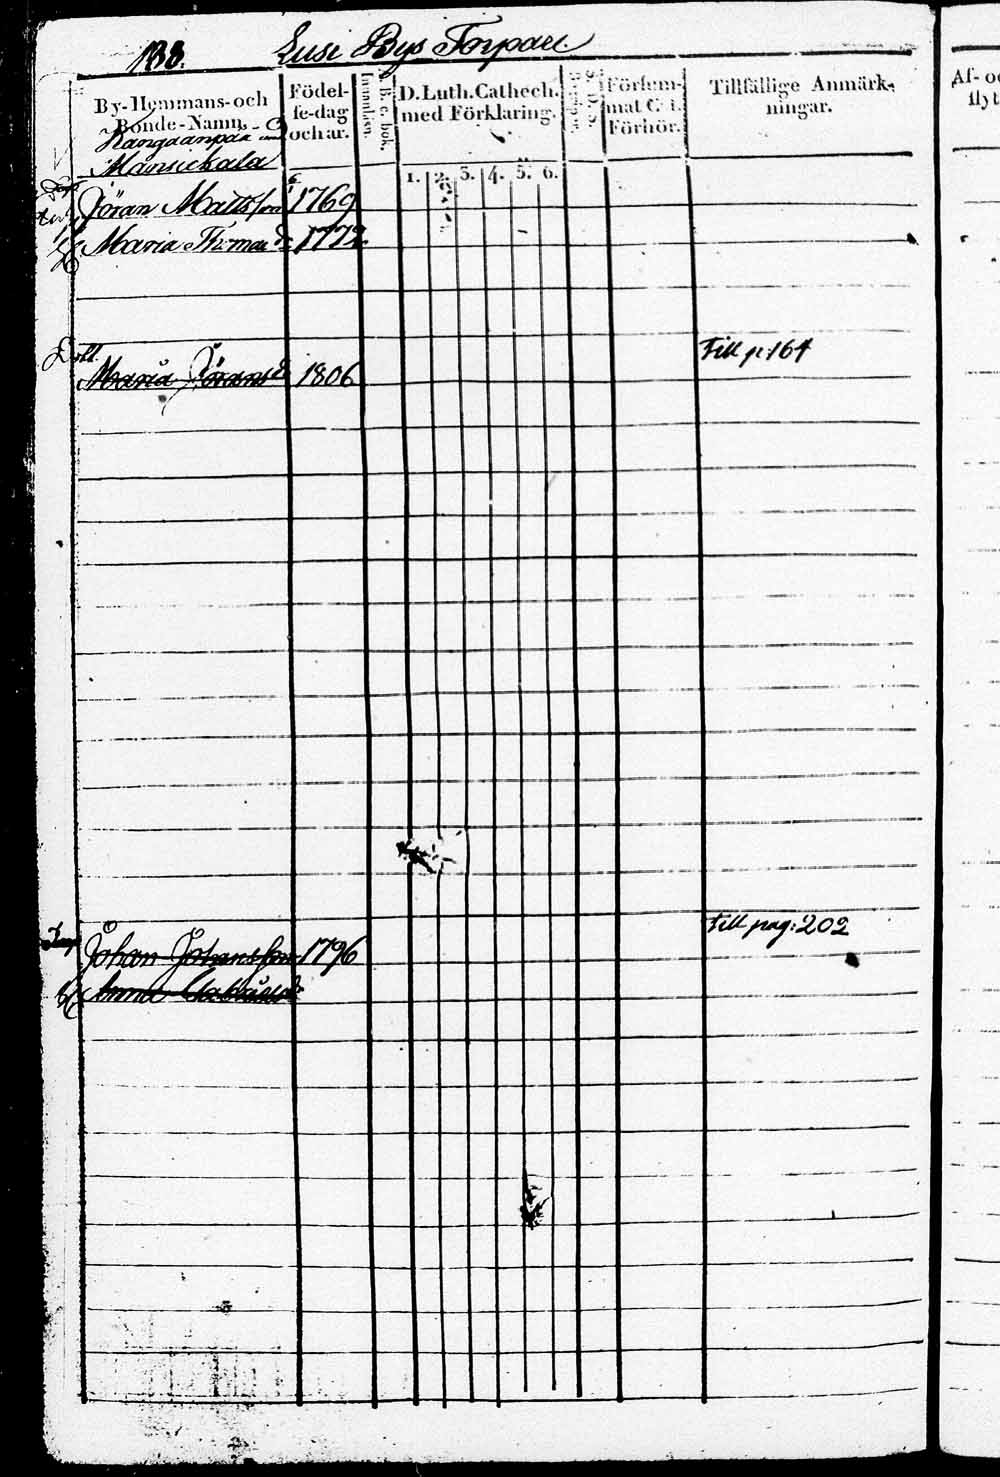 188. Lusi Bys Torpare.
By-Hemmans-och Bonde-Namn.
Födelse-dag och år.
Innanläsn.
A. B. c. bok.
D. Luth. Cathech. med Förklaring.
1. 2. 3. 4. 5. 6.
Försummat C. i. Förhör.
Tillfällige Anmärkningar.
Kangaanpää
Mansickala
Jöran Mattsson 1769
H. Maria Thomas dr 1772
Dott. Maria Jörans dr 1806
Till p. 164
Johan Johansson 1796
Till pag: 202
H. Anna
Af- o
flyt